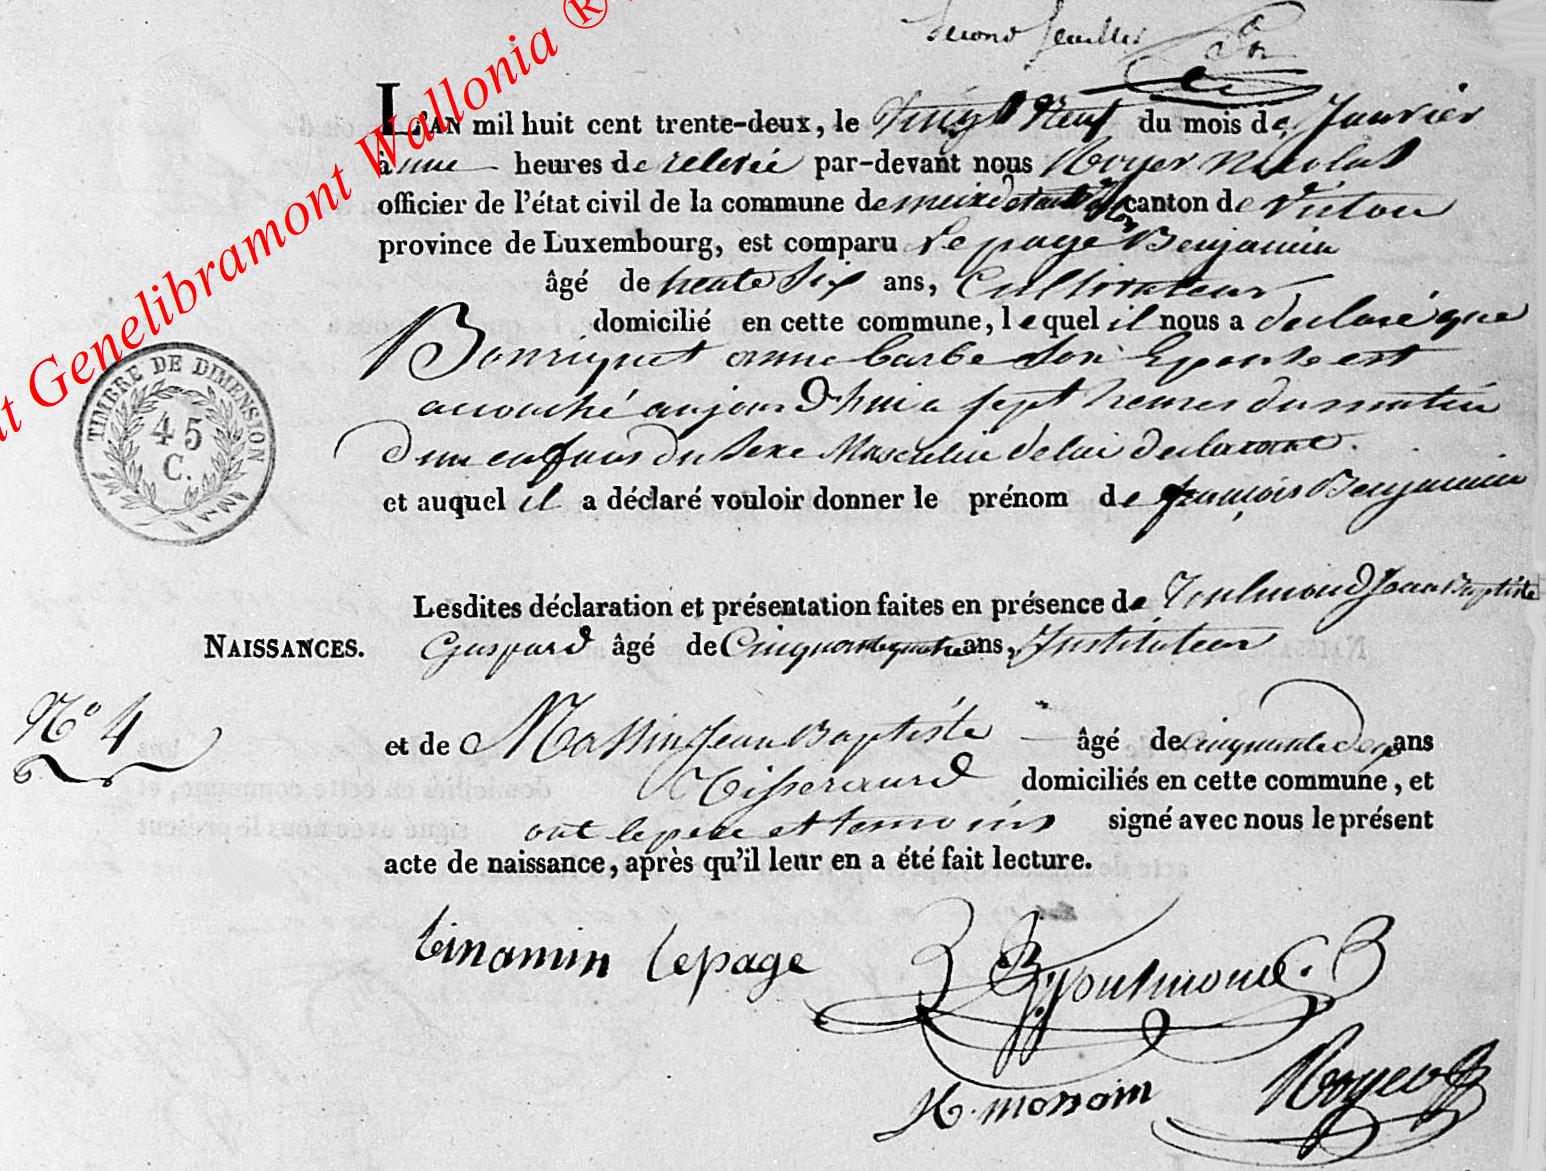 Second feuillet
L'AN mil huit cent trente-deux, le Vingt Neuf du mois de Janvier
à une heures de relevée par-devant nous Royer Nicolas
officier de l'état civil de la commune de meix devant Virton canton de Virton
province de Luxembourg, est comparu Lepage Benjamin
âgé de trente Six ans, Cultivateur
domicilié en cette commune, lequel il nous a declaré que
Bonriquet anne barbe Son Epouse est
accouché aujourd'hui a sept heures du matin
d'un enfant du Sexe Masculin de lui declarant.
et auquel il a déclaré vouloir donner le prénom de françois Benjamin
Lesdites déclaration et présentation faites en présence de Toulmond Jean Baptiste
NAISSANCES. Gaspard âgé de Cinquante quatre ans, Instituteur
N° 4
et de Massin Jean Baptiste âgé de cinquante ans
Tisserand domiciliés en cette commune, et
ont le pere et temoins signé avec nous le présent
acte de naissance, après qu'il leur en a été fait lecture.
binamin lepage
Toulmond
massain
Royer
TIMBRE DE DIMENSION
45
C.
Genelibramont Wallonia ®